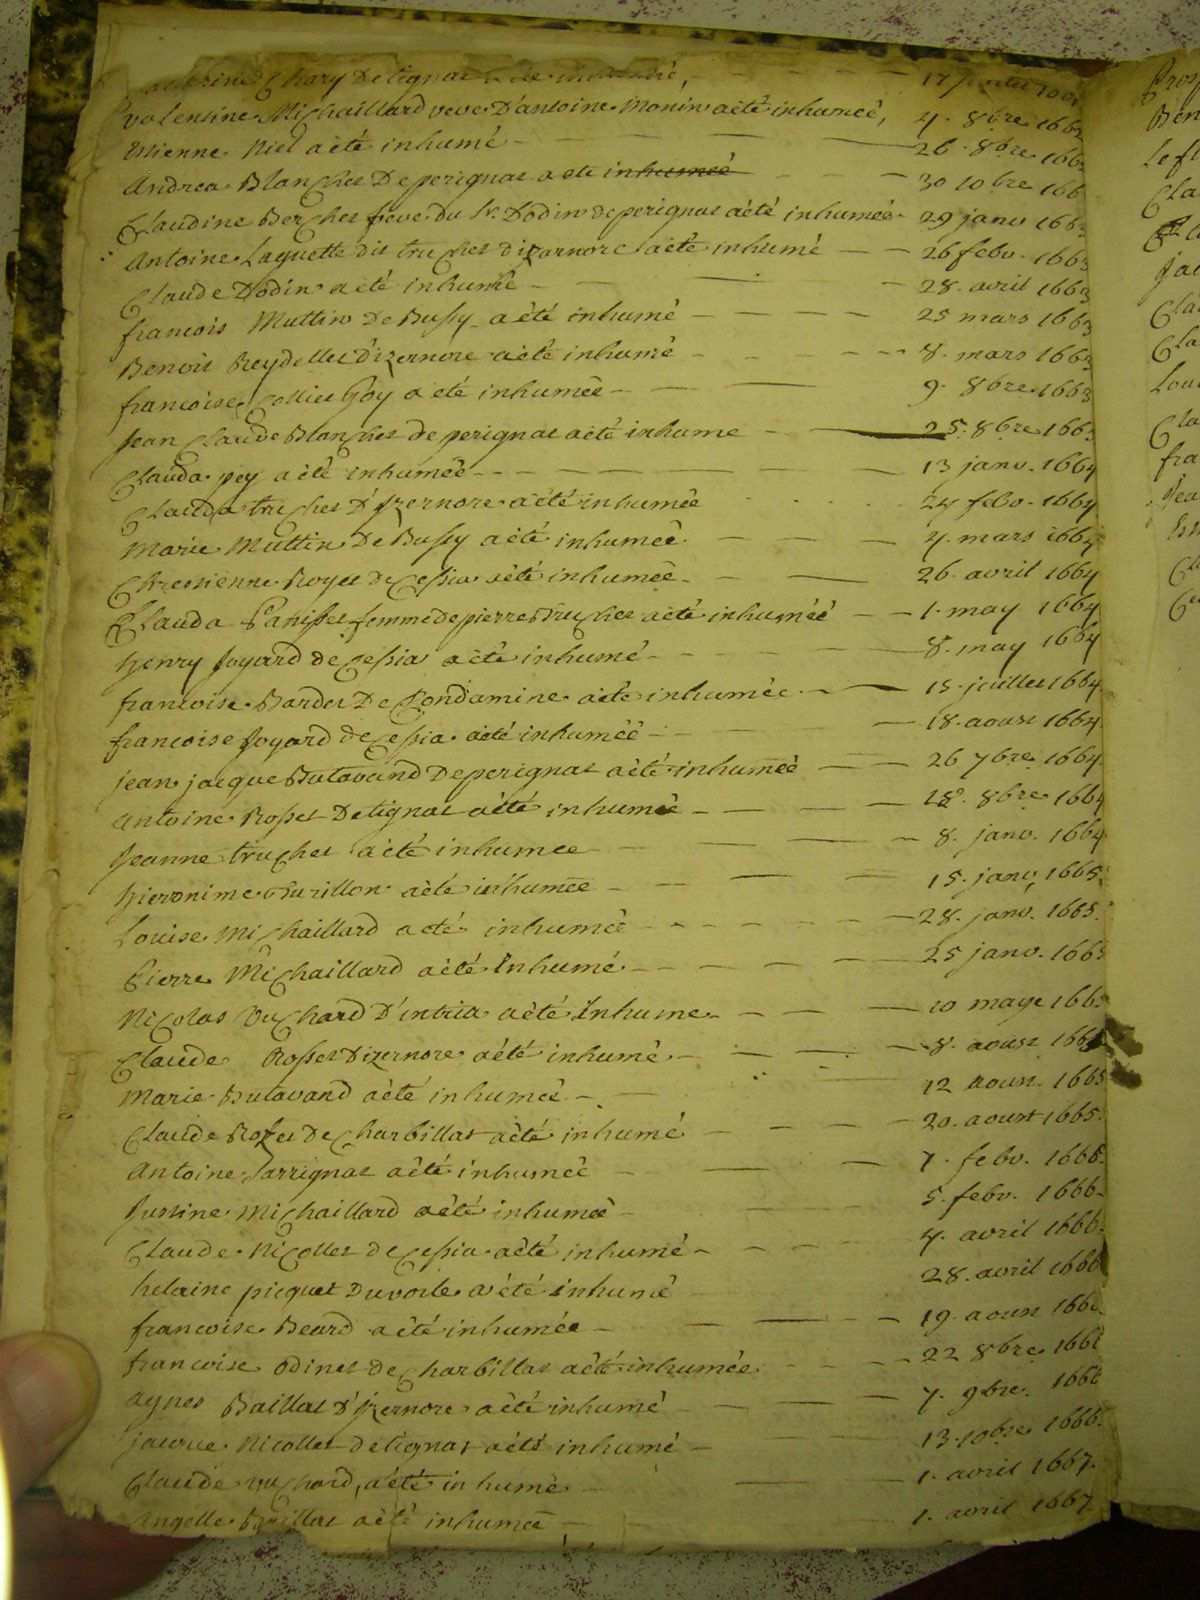 Chary De tignat inhumé,
valentine Michaillard veve D'antoine Monin a été inhumeé, 4. 8bre 1662
Etienne Niel a été inhumé 26. 8bre 166
Andrea Blanchet De perignat a eté inhumeé 30 10bre 166
Claudine Berchet feve du Sr. Dodin de perignat a été inhumeé 29 janv 166
Antoine Laguette dit truchet d'izarnore a été inhumé 26 febv. 1663
Claude Dodin a été inhumé 28. avril 1663
francois Muttin De Bussy a été inhumé 25 mars 1663
Benoit Reydellet d'izernore a été inhumé 8. mars 1663
francoise Collier Goy a eté inhumeé 9. 8bre 1663
Jean Claude Blanchet de perignat a été inhume 25. 8bre 1663
Clauda pey a été inhumeé 13 janv. 1664
Clauda truchet d'Izernore a été inhumeé 24 febv. 1664
Marie Muttin De Bussy a été inhumeé 4. mars 1664
Chrestienne Royer de Cessia a été inhumeé 26. avril 1664
Clauda Panisset femme de pierre truchet a été inhumeé 1. may 1664
henry Joyard de Cessia a été inhumé 8. may 1664
francoise Bardet De Condamine a été inhumée 15. juillet 1664
francoise Joyard de Cessia a été inhumeé 18. aoust 1664
jean jacque Butavand De perignat a été inhumeé 26 7bre 1664
Antoine Rosset De tignat a été inhumé 18. 8bre 1664
Jeanne truchet a été inhumee 8. janv. 1664
hieronime Gurillon a été inhumeé 15. janv, 1665
Louise Michaillard a eté inhumeé 28. janv. 1665.
Pierre Michaillard a été Inhumé 25 janv. 1665
Nicolas Vuchard D'intria a été Inhume 10 maye 166
Claude Rosset D'izernore a été inhumé 8. aoust 1665
Marie Butavand a été inhumeé 12 aoust 1665
Claude Rozet De Charbillat a été inhumé 20. aoust 1665.
Antoine Sarrignat a été inhumeé 7. febv. 1666.
Justine Michaillard a été inhumeé 5. febv. 1666
Claude Nicollet de Cessia a été inhumé 4. avril 1666.
helaine picquet Duvoile a été inhumé 28. avril 1666
francoise Beard a été inhumée 19. aoust 166
francoise Odinet de Charbillat a été inhumée 22 8bre 166
agnes Baillat d'Izernore a été inhumé 7. 9bre. 166
jacque Nicollet de tignat a été inhumé 13. 10bre 1666.
Claude vuchard, a été inhumé 1. avril 1667.
Angelle Baillat a été inhumeé 1. avril 1667